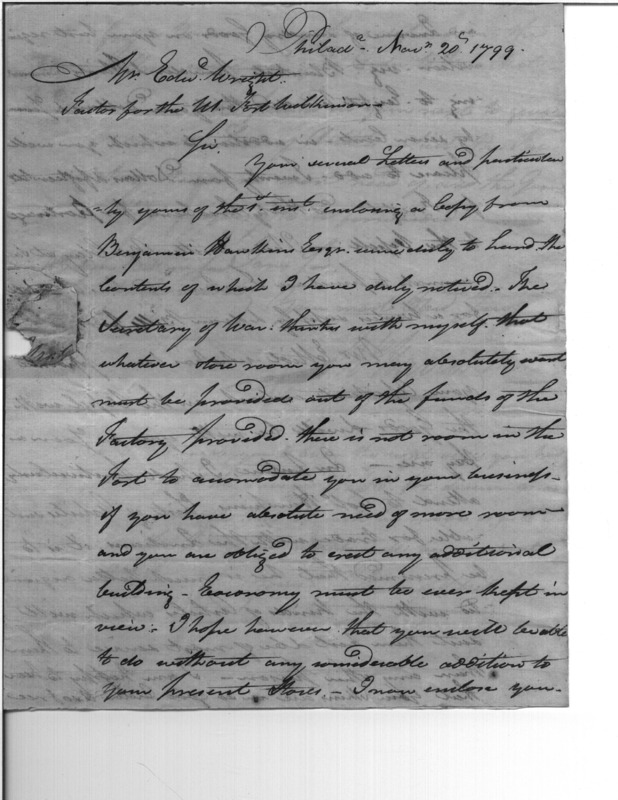 Philada. Novr. 20th 1799.
Mr. Edwd. Wright.
Factor for the US. Fort Wilkinson
Sir.
Your several Letters and particular
=ly yours of the 1st. inst. enclosing a Copy from
Benjamin Hawkins Esqr. came duly to hand. the
Contents of which I have duly noticed. The
Secretary of War: thinks with myself. that
whatever store room you may absolutely want
must be provided out of the funds of the
Factory provided. there is not room in the
Fort to accomodate you in your business.
if you have absolute need of more room
and you are obliged to erect any additional
building - Eoconomy must be ever kept in
view:- I hope however that you will be able
to do without any considerable addition to
your present Stores.- I now enclose you-